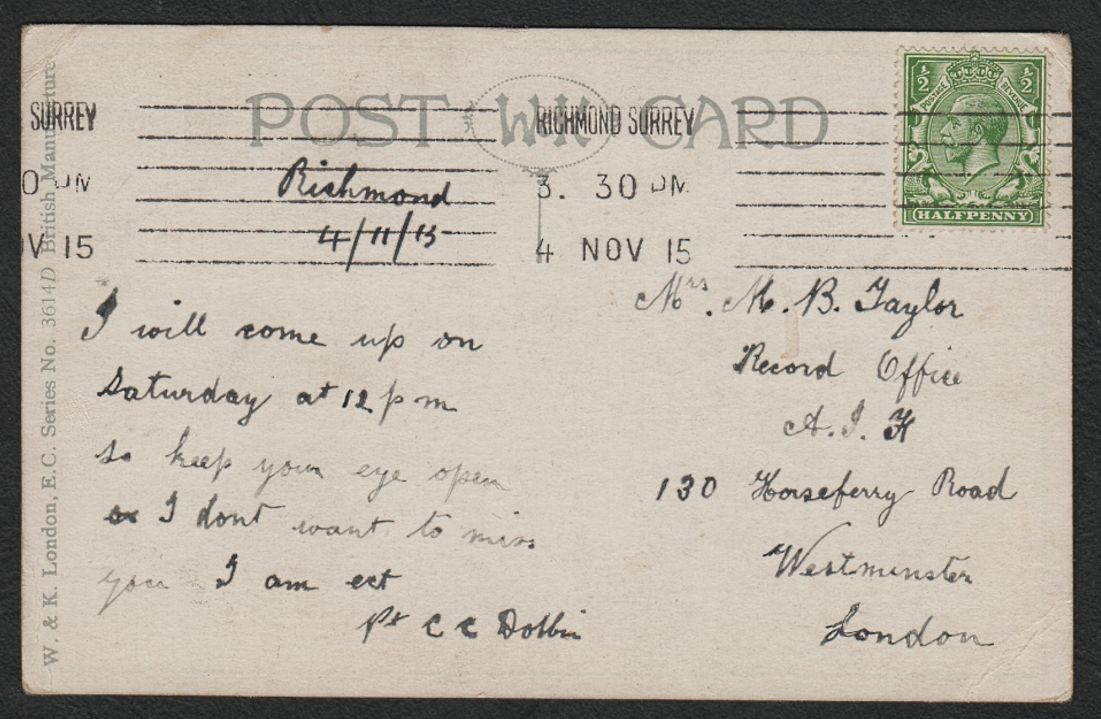 POST WK CARD
SURREY
0 PM
V 15
RICHMOND SURREY
3. 30 PM
4 NOV 15
½ ½
POSTAGE REVENUE
HALFPENNY
W. & K. London, E.C. Series No. 3614D British Manufacture
Richmond
4/11/15
I will come up on
Saturday at 12 p m
so keep your eye open
as I dont want to miss
you I am ect
Pt C C Dobbin
Mrs. M. B. Taylor
Record Office
A. I. F
130 Horseferry Road
Westminster
London